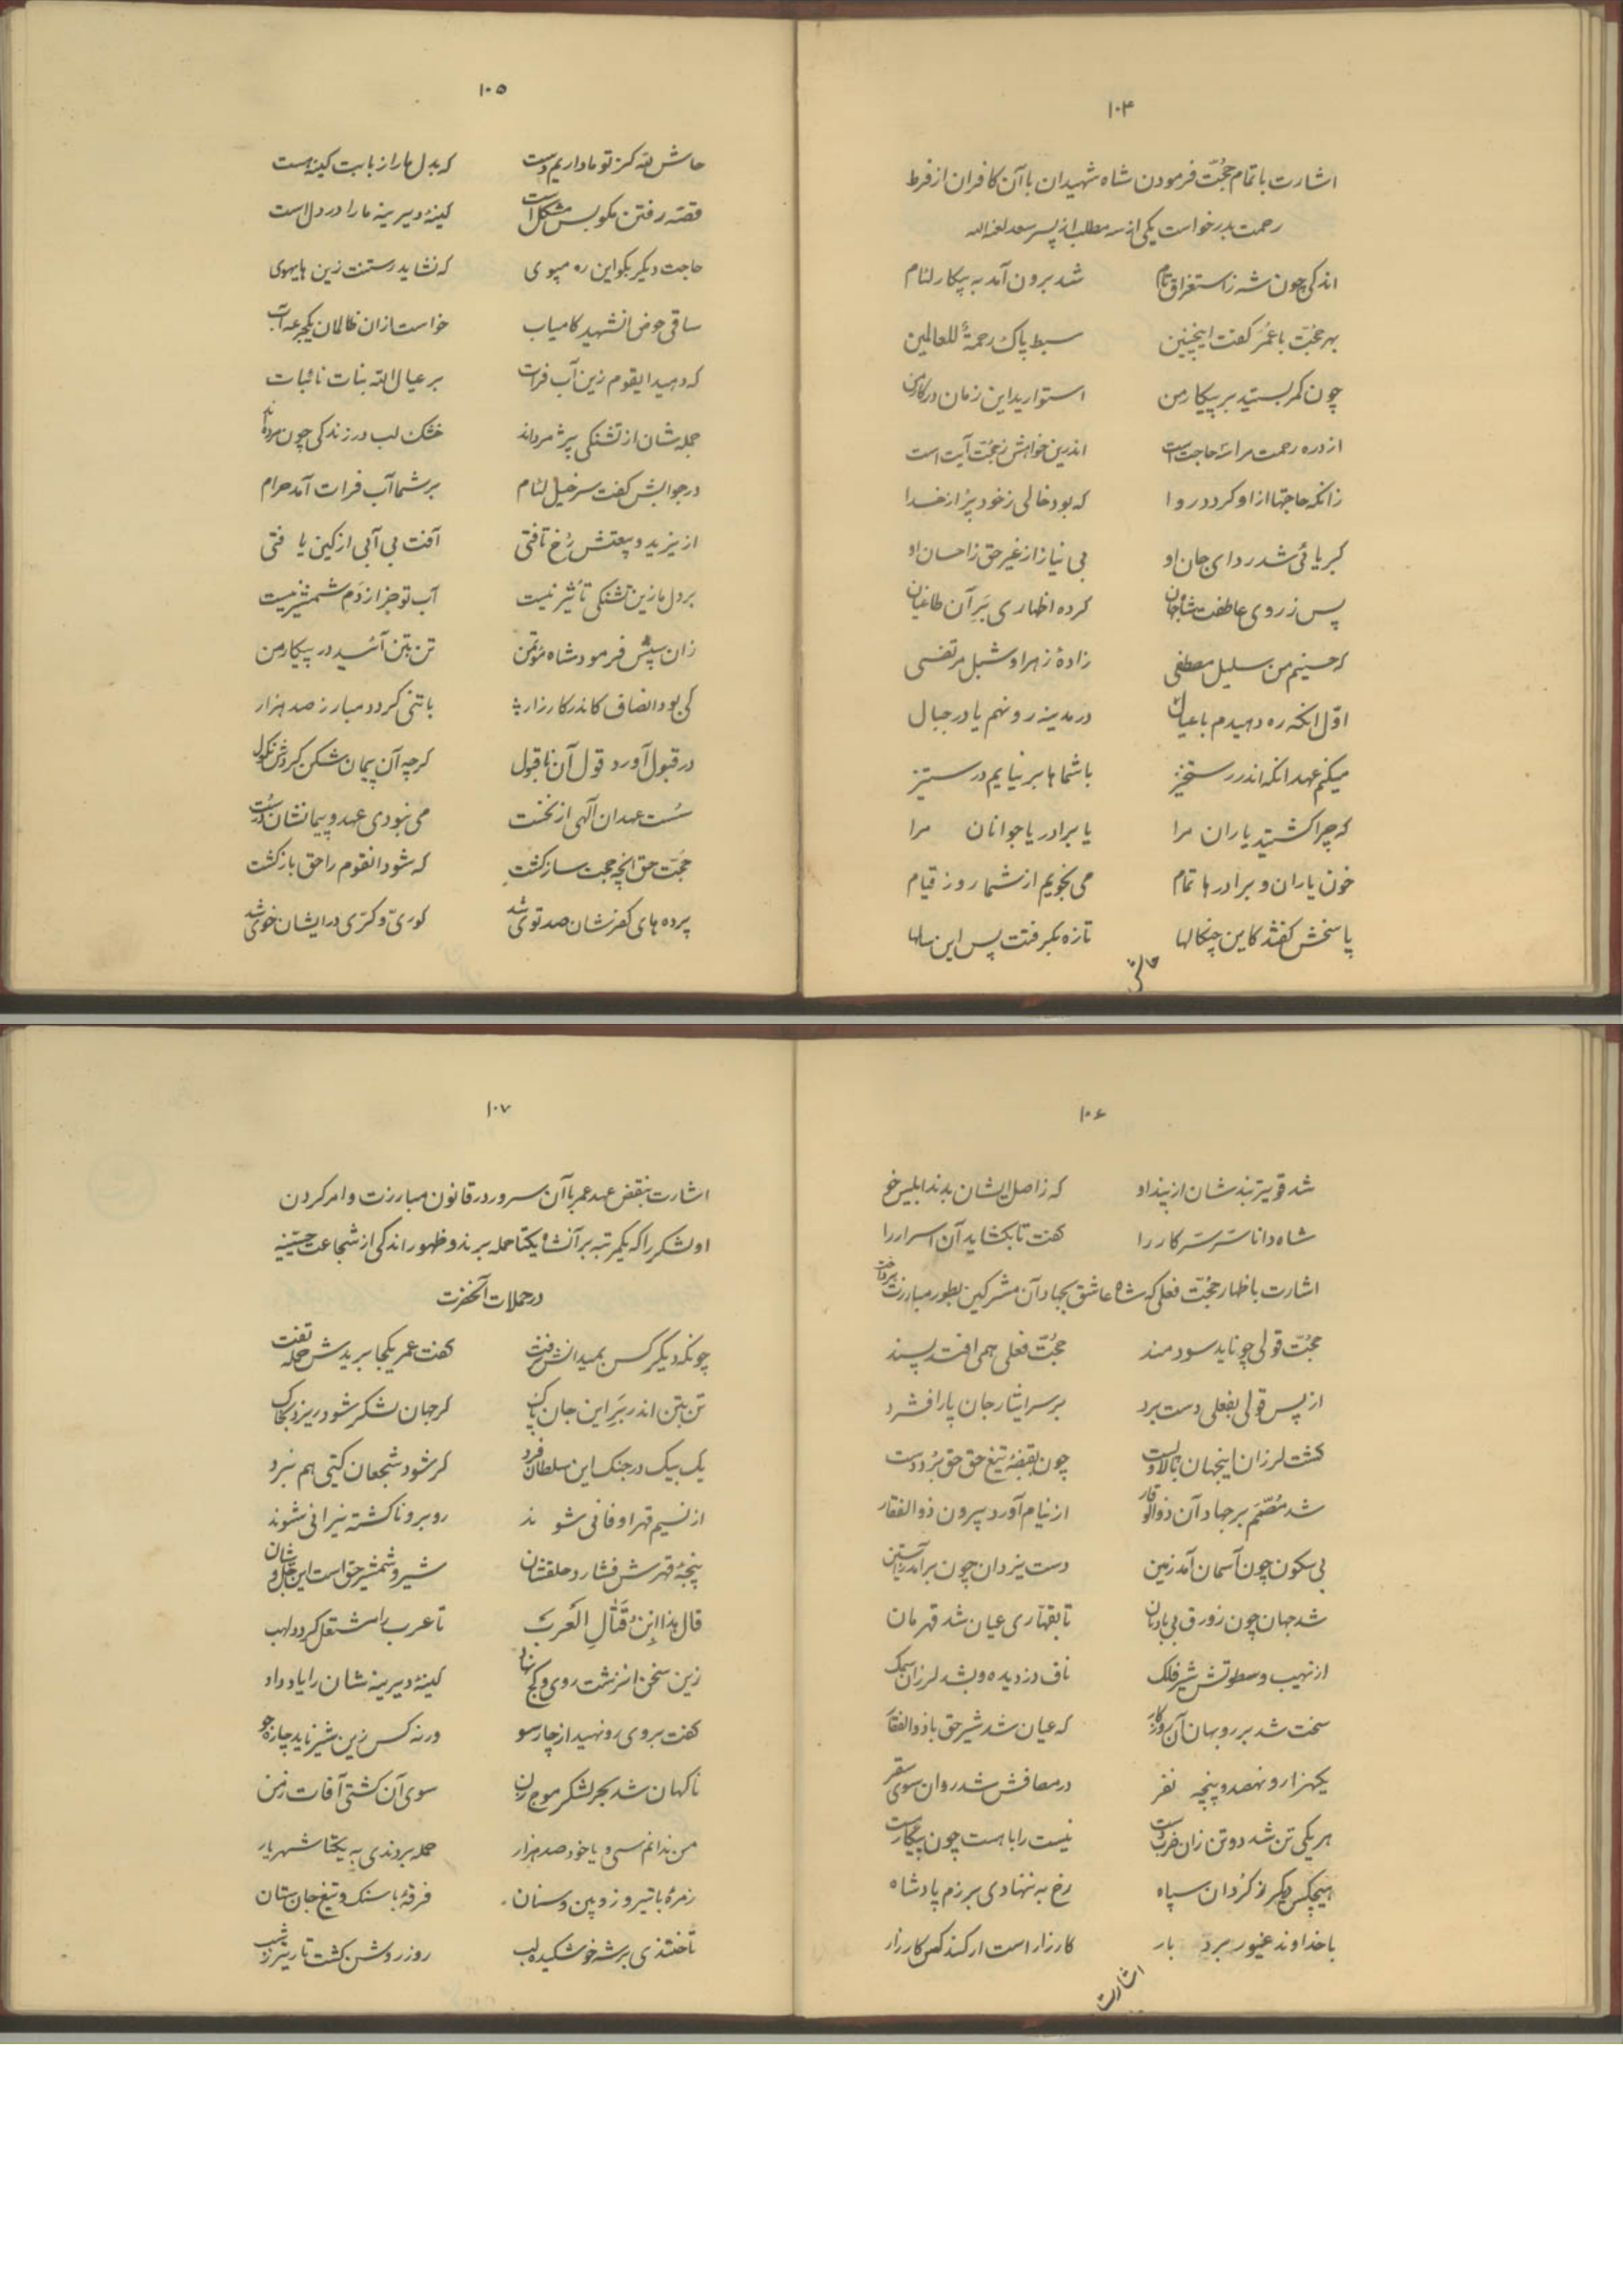 ۱۰۴
اشارت باتمام حجّت فرمودن شاه شهیدان با آن کافران از فرط
رحمت بدرخواست یکی از سه مطلب از پسر سعد لعنه الله
اندکی چون شه ز استغراق تام شد برون آمد به پیکار لئام
بهر حجّت با عُمَر گفت اینچنین سبط پاک رحمةٌ للعالمین
چون کمر بستید بر پیکار من استوارید این زمان در کار من
از در رحمت مرا سه حاجت است اندرین خواهش ز حجّت آیت است
زانکه حاجتها از او گردد روا که بود خالی ز خود پر از خدا
کبریائی شد ردای جان او بی نیاز از غیر حق ز احسان او
پس ز روی عاطفت شاه جهان کرده اظهاری بَرِ آن طاغیان
که حسینم من سلیل مصطفی زادهٔ زهرا و شبل مرتضی
اوّل انکه ره دهیدم با عیال در مدینه رو نهم یا در جبال
میکنم عهد انکه اندر رستخیز با شماها بر نیایم در ستیز
که چرا کشتید یاران مرا یا برادر یا جوانان مرا
خون یاران و برادرها تمام می نجویم از شما روز قیام
پاسخش گفتند کاین چنکالها تازه بگرفتت پس این سالها
حاش
۱۰۵
حاش لله کز تو ما داریم دست که بدل ما را ز بابت کینه هست
قصّه رفتن مگو بس مشکل است کینهٔ دیرینه ما را در دل است
حاجت دیکر بگو این ره مپوی که نشاید رستنت زین هایهوی
ساقی حوض انشهید کامیاب خواست ازان ظالمان یکجرعه آب
که دهید ایقوم زین آب فرات بر عیال الله بنات نائبات
جمله شان از تشنگی پژمرده اند خشک لب در زندگی چون مرده اند
در جوابش گفت سر خیل لئام بر شما آب فرات آمد حرام
از یزید و بیعتش رُخ تافتی آفت بی آبی از کین یافتی
بر دل ما زین تشنگی تأثیر نیست آب تو جز از دَم شمشیر نیست
زان سپس فرمود شاه مؤتمن تن بتن آئید در پیکار من
کی بود انصاف کاندر کارزار با تنی گردد مبارز صد هزار
در قبول آورد قول آن ناقبول گرچه آن پیمان شکن کردش نکول
سُست عهدان آلهی از نخست می نبودی عهد و پیمانشان درست
حجّت حق انچه حجت ساز گشت که شود انقوم را حق باز گشت
پرده های کفرشان صد توی شد کوریّ و کرّی در ایشان خوی شد
۱۰۶
شد قویتر بندشان از پند او که ز اصل ایشان بدند ابلیس خو
شاه دانا سَرّ سرّ کار را گفت تا بگشاید آن اسرار را
اشارت باظهار حجّت فعلی که شاه عاشق بجهاد آن مشرکین بطور مبارزت پرداخت
حجّت قولی چو ناید سودمند حجّت فعلی همی افتد پسند
از پس قولی بفعلی دست برد بر سر ایثار جان پا را فشرد
گشت لرزان اینجهان بالا و پست چون بقبضهٔ تیغ حق حق بُرد دست
شد مُصَمّم بر جهاد آن ذو الوقار از نیام آورد بیرون ذوالفقار
بی سکون چون آسمان آمد زمین دست یزدان چون برآمد ز آستین
شد جهان چون زورق بی بادبان تا بقهّاری عیان شد قهرمان
از نهیب و سطوتش شیر فلک ناف دزدیده و بشد لرزان سمک
سخت شد بر روبهان آن روزگار که عیان شد شیر حق با ذوالفقار
یکهزار و نهصد و پنجه نفر در مصافش شد روان سوی سقر
هر یکی تن شد دو تن زان ضرب دست نیست را با هست چون پیکار هست
هیچکس دیگر ز گردان سپاه رخ به ننهادی برزم پادشاه
با خداوند غیور برد بار کارزار است ار کند کس کارزار
اشارت
۱۰۷
اشارت بنقض عهد عمر با آن سرور در قانون مبارزت و امر کردن
او لشکر را که یکمرتبه بر آنشاه یکتا حمله برند و ظهور اندکی از شجاعت حسینیه
در حملات آنحضرت
چونکه دیگر کس بمیدانش نرفت گفت عمر یکجا بریدش حمله تفت
تن بتن اندر بَرِ این جان پاک گر جهان لشکر شود ریزد بخاک
یک بیک در جنک این سلطان فرد گر شود شجعان گیتی هم نبرد
از نسیم قهر او فانی شوند روبرو ناگشته نیرانی شوند
پنجهٔ قهرش فشارد حلقشان شیر و شمشیر حق است این جلّ و شان
قال هذا اِبنُ قَتّالِ العَرَب تا عرب را مشتعل گردد لهب
زین سخن انزشت روی و کج نهاد کینهٔ دیرینه شان را یاد داد
گفت بروی رو نهید از چارسو ورنه کس زین شیر ناید چاره جو
ناگهان شد بحر لشکر موج زن سوی آن کشتی آفات زمن
من ندانم سی و یا خود صد هزار حمله بردندی به یکتا شهریار
زمرهٔ با تیر و زوپین و سنان فرقهٔ با سنک و تیغ جان ستان
تاختندی بر شه خوشکیده لب روز روشن گشت تاریتر ز شب